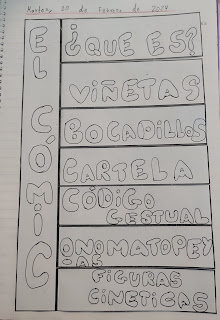 Martes, 20 de Febrero de 2024
EL CÓMIC
¿QUE ES?
VIÑETAS
BOCADILLOS
CARTELA
CÓDIGO
GESTUAL
ONOMATOPEY
AS
FIGURAS
CINETICAS